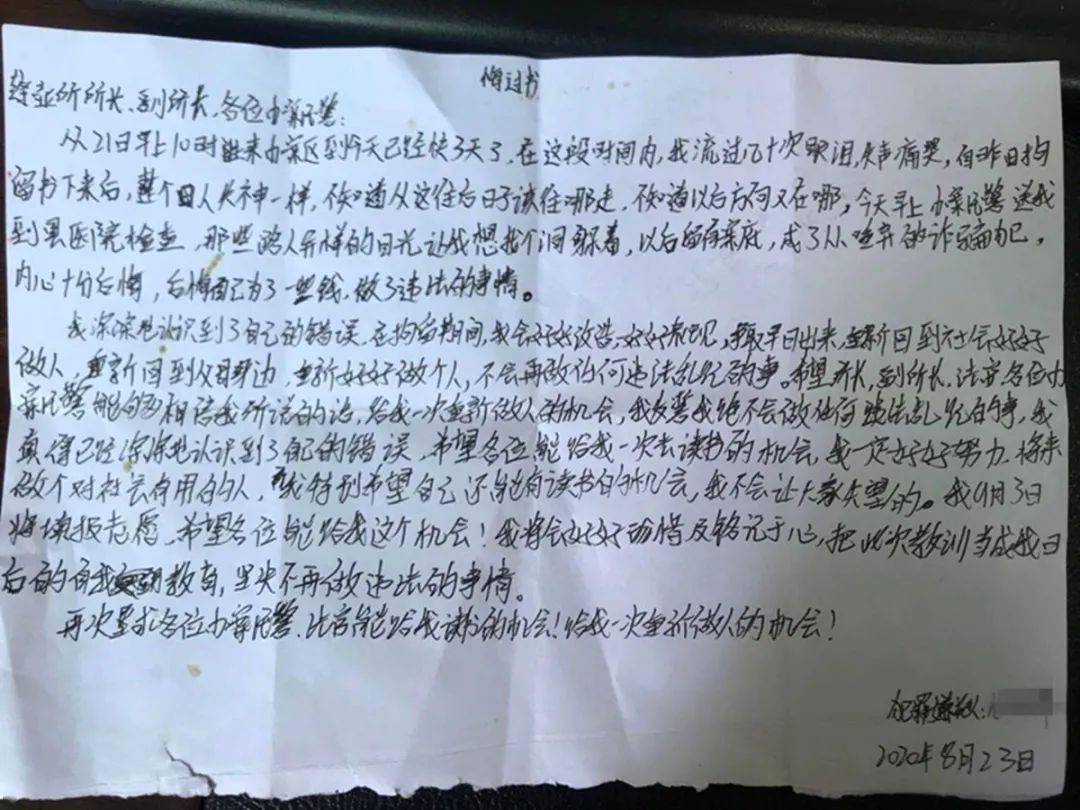 悔过书
所所长、副所长、各位办案民警:
从21日早上10时进来办案区到今天已经快3天了,在这段时间内,我流过几十次眼泪,失声痛哭,自昨日拘
留书下来后,整个人失神一样,不知道从这往后日子该往哪走,不知道以后方向又在哪,今天早上办案民警送我
到县医院检查,那些路人异样的目光让我想找个洞躲着,以后留有案底,成了人唾弃的诈骗犯,
内心十份后悔,后悔自己为了一些钱,做了违法的事情。
我深深地认识到了自己的错误,在拘留期间,我会好好改造,好好表现,争取早日出来,重新回到社会好好
做人,重新回到父母身边,重新好好做个人,不会再做任何违法乱纪的事。希望所长、副所长、各位办
案民警能够相信我所说的话,给我一次重新做人的机会,我发誓我绝不会做任何违法乱纪的事,我
真得已经深深地认识到了自己的错误,希望各位能给我一次去读书的机会,我一定好好努力,将来
做个对社会有用的人,我特别希望自己还能有读书的机会,我不会让大家失望的。我9月3日
将填报志愿,希望各位能给我这个机会!我将会好好珍惜及铭记于心,把此次教训当成我日
后的自我教育,坚决不再做违法的事情。
再次恳求各位办案民警,给我读书的机会!给我一次重新做人的机会!
犯罪嫌疑人:
2020年8月23日